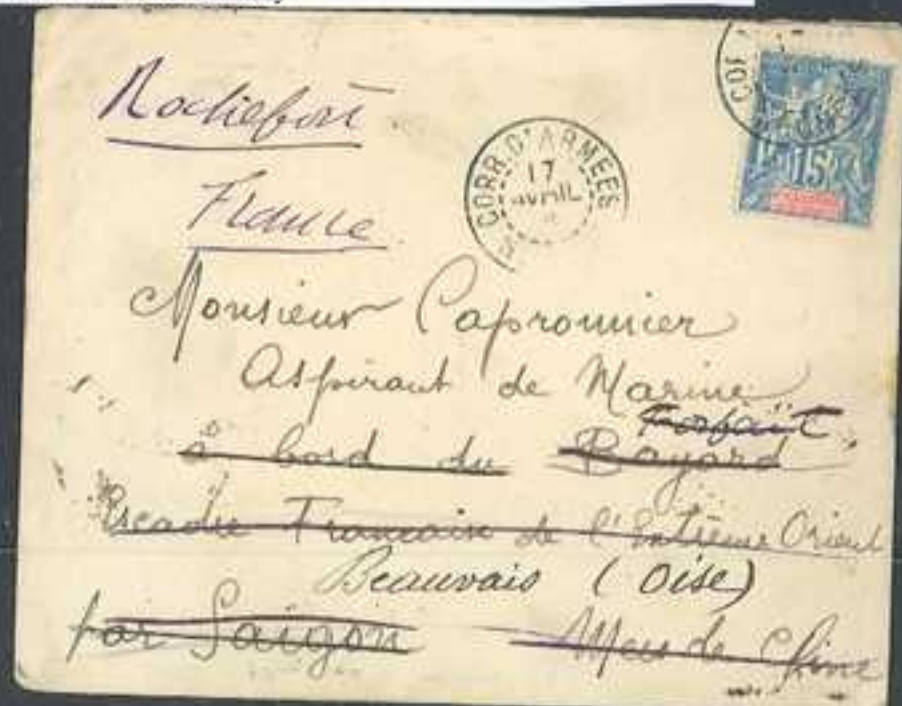 Rochefort
France
CORR. D'ARMEES
17
AVRIL
15
Monsieur Capronnier
Aspirant de Marine
Forfait
à bord du Bayard
Escadre Française de l'Extrême Orient
Beauvais (Oise)
par Saïgon Mers de Chine